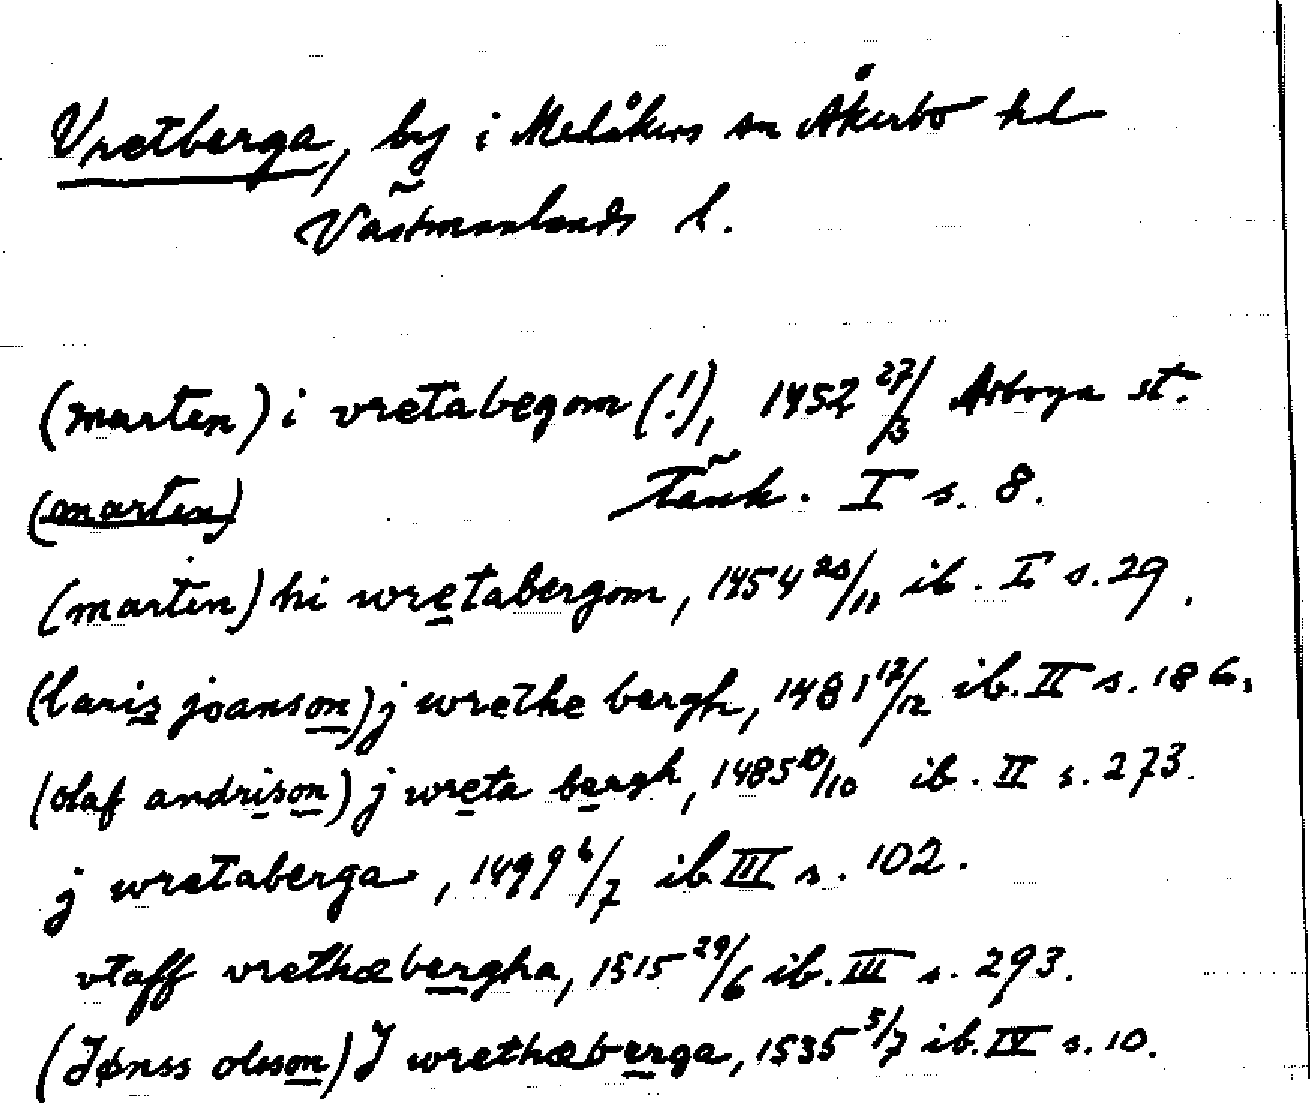 Vretberga, by i Medåkers sn Åkerbo hd
Västmanlands l.
(marten) i vretabegom (!), 1452 27/3 Arboga st.
(marten) Tänk. I s. 8.
(marten) hi wretabergom, 1454 /11 ib. I s. 29.
(laris joanson) j wrethe bergh, 1481 12/12 ib. II s. 186.
(olaf andrison) j wreta bergh, 1485 10/10 ib. II s. 273.
j wretaberga, 1499 6/7 ib. III s. 102.
vtaff vrethæbergha, 1515 29/6 ib. III s. 293.
(Jønss olsson) J wrethæberga, 1535 5/7 ib. IV s. 10.